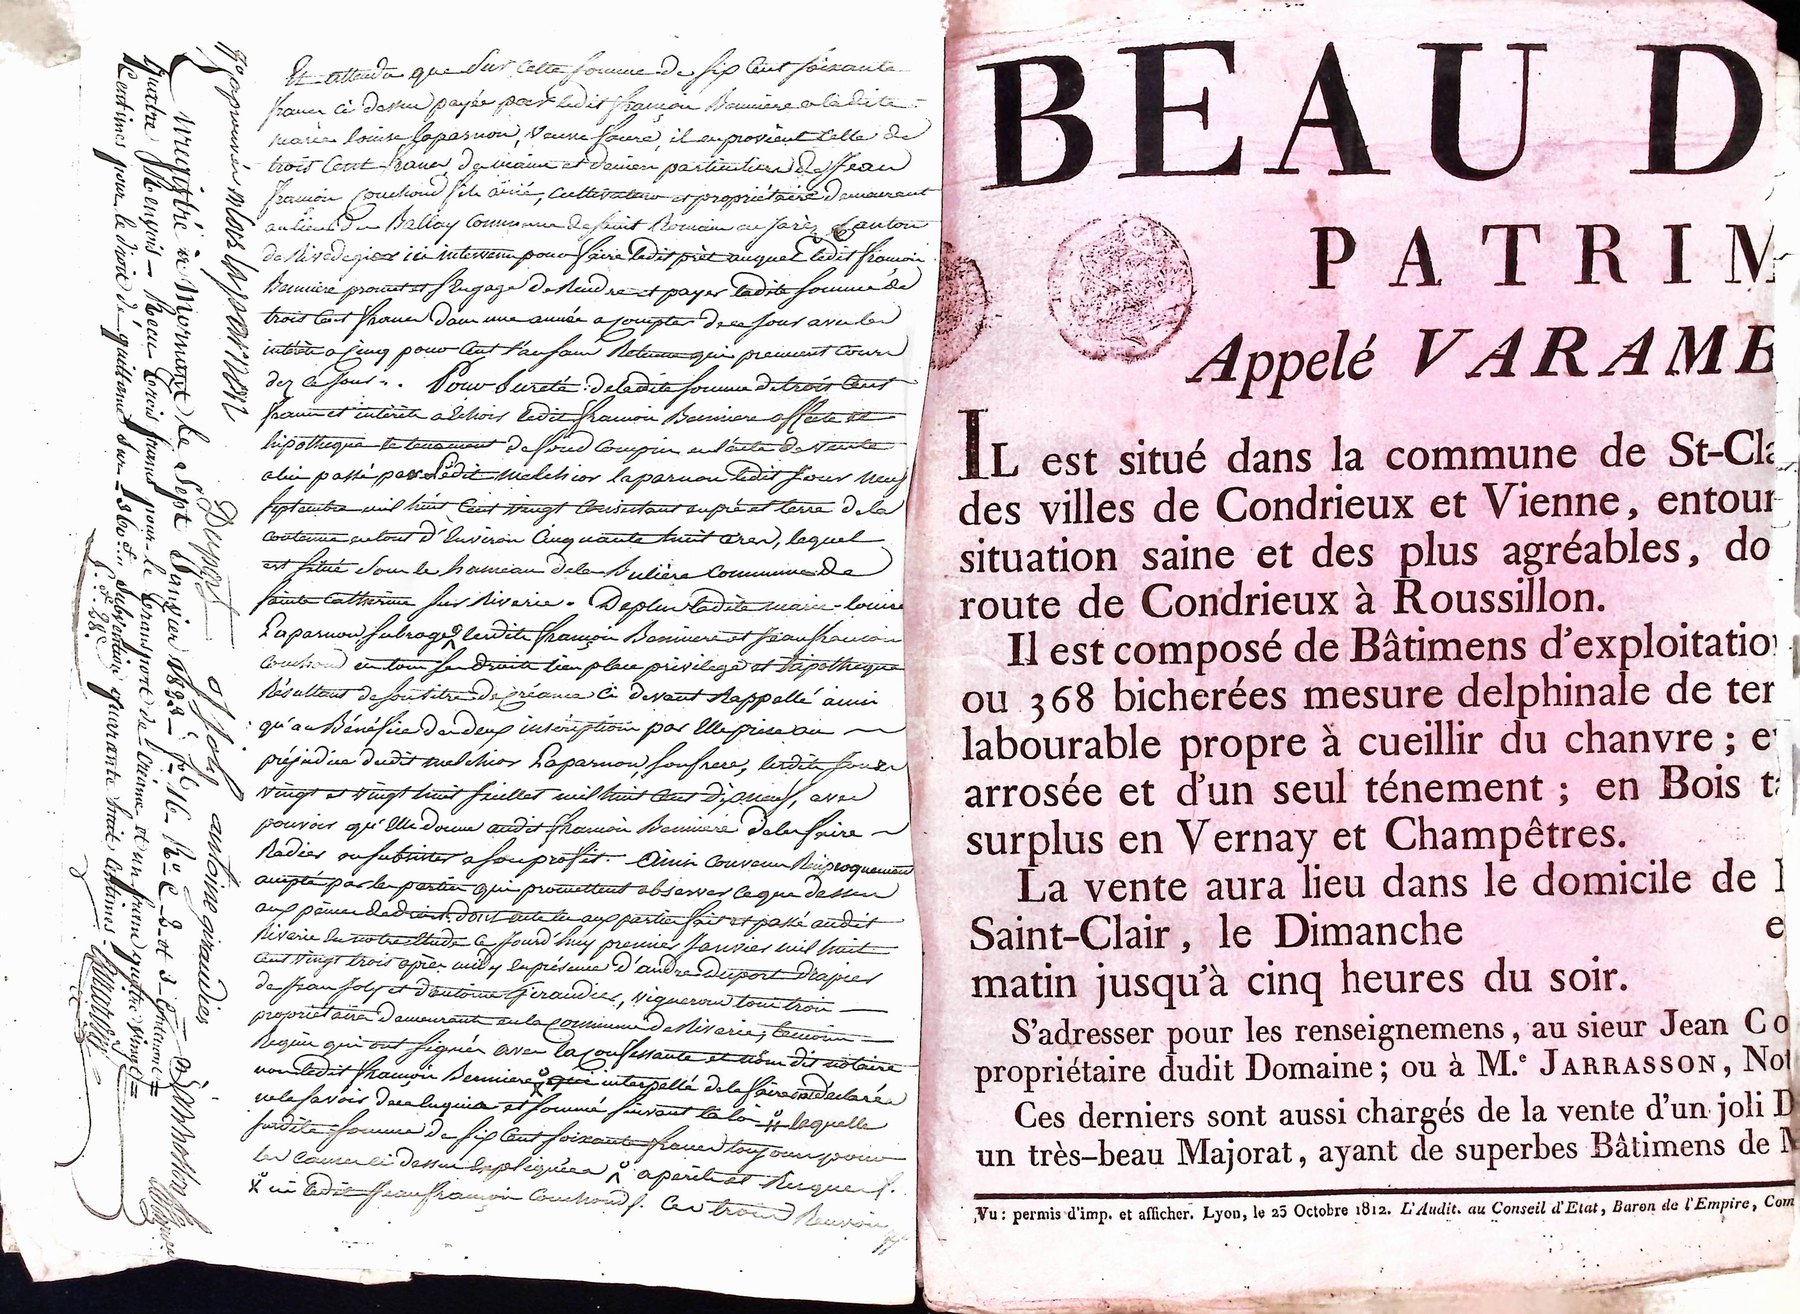 Et attendu que sur cette somme de six cent soixante
francs ci dessus payée par ledit françois Bonniere a la dite
marie louise laparnon, veuve faure, il en provient celle de
trois cent francs de mains et deniers particuliers de Jean
françois Couchoud fils ainé, cultivateur et propriétaire demeurant
au lieu du Ballay commune de saint Romain en Jarèz Canton
de Rivedegier ici intervenu pour faire ledit prêt auquel ledit françois
Bonniere promet et s'engage de rendre et payer ladite somme de
trois cent francs dans une année a compter de ce jour avec les
intérêts a cinq pour cent sans retenue qui prennent cours
dez ce jour. Pour sureté de ladite somme de trois cent
francs et intérêts a échoir ledit françois Bonniere affecte et
hipotheque le tenement de fond compris en l'acte de vente
a lui passé par ledit melchior laparnon ledit jour neuf
septembre mil huit cent vingt consistant en pré et terre de la
contenue en tout d'environ cinquante huit ares, lequel
est situé sur le hameau de la Bulière commune de
sainte Catherine sur Riverie. De plus ladite marie-louise
Laparnon subroge lesdits françois Bonniere et Jean françois
Couchoud en tous ses droits lieu place privilege et hipotheque
Résultant de son titre de créance ci devant Rappellé ainsi
qu'au Bénéfice de deux inscriptions par Elle prise au
préjudice dudit melchior Laparnon, son frere, lesdits jours
vingt et vingt huit juillet mil huit cent dix neuf, avec
pouvoir qu'Elle donne audit françois Bonniere de les faire
Radier ou subsister a son profit. Ainsi convenu Réciproquement
accepté par les parties qui promettent observer ce que dessus
aux peines de droit. dont acte lu aux parties fait et passé audit
Riverie en notre Etude ce jourd'huy premier Janvier mil huit
cent vingt trois après midy en présence d'andré duport drapier
de Jean Joly et d'antoine Giraudier, vignerons tous trois
propriétaires demeurants en la Commune de Riverie, témoins
Requis qui ont signés avec la confessante et nous dit notaire
non ledit françois Bonniere que interpellé de le faire a déclaré
ne le savoir de ce Enquis et sommé suivant la loi laquelle
susdite somme de six cent soixante francs toujours pour
les causes ci dessus Expliquées a périls et Risques
ni ledit Jean françois Couchoud. Ces trois Renvois
approuvés
Duport
Joly antoine giraudier
Enregistré à Mornant le sept Janvier 1823
BEAU D
PATRIM
Appelé VARAMB
IL est situé dans la commune de St-Cla
des villes de Condrieux et Vienne, entour
situation saine et des plus agréables, do
route de Condrieux à Roussillon.
Il est composé de Bâtimens d'exploitatio
ou 368 bicherées mesure delphinale de ter
labourable propre à cueillir du chanvre ; e
arrosée et d'un seul ténement ; en Bois t
surplus en Vernay et Champêtres.
La vente aura lieu dans le domicile de
Saint-Clair, le Dimanche e
matin jusqu'à cinq heures du soir.
S'adresser pour les renseignemens, au sieur Jean Co
propriétaire dudit Domaine ; ou à M.e JARRASSON, Not
Ces derniers sont aussi chargés de la vente d'un joli D
un très-beau Majorat, ayant de superbes Bâtimens de M
Vu : permis d'imp. et afficher. Lyon, le 23 Octobre 1812. L'Audit. au Conseil d'Etat, Baron de l'Empire, Com